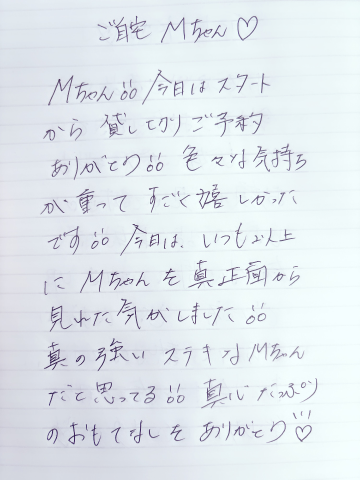 ご自宅 Mちゃん♡
Mちゃん!! 今日は スタート
から 貸し切り ご予約
ありがとう!! 色々な気持ち
が 重って すごく嬉しかった
です!! 今日は、いつも以上
に Mちゃんを 真正面から
見れた気がしました!!
真の強い ステキなMちゃん
だと思ってる!! 真心たっぷり
のおもてなしを ありがとう♡